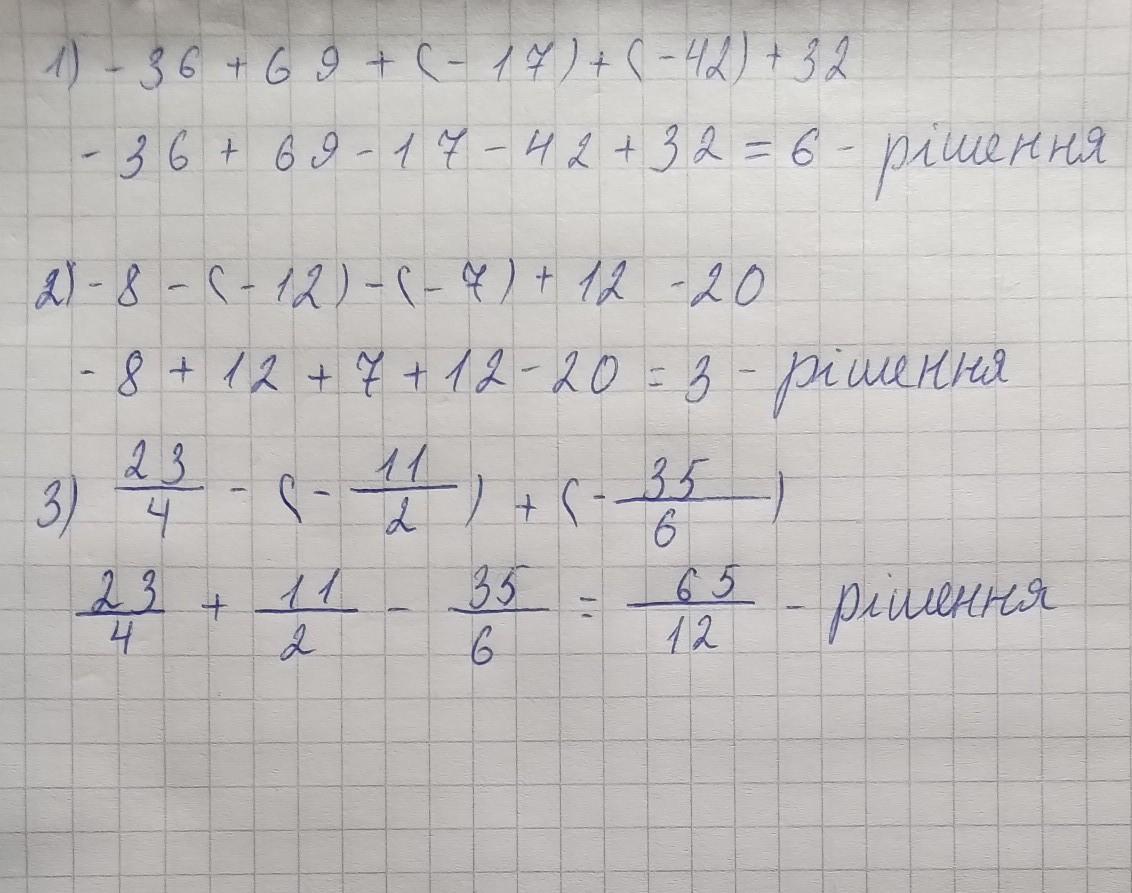 1) - 36 + 69 + (- 17) + (- 42) + 32
- 36 + 69 - 17 - 42 + 32 = 6 - рішення
2) - 8 - (- 12) - (- 7) + 12 - 20
- 8 + 12 + 7 + 12 - 20 = 3 - рішення
3) 23/4 - (- 11/2) + (- 35/6)
23/4 + 11/2 - 35/6 = 65/12 - рішення